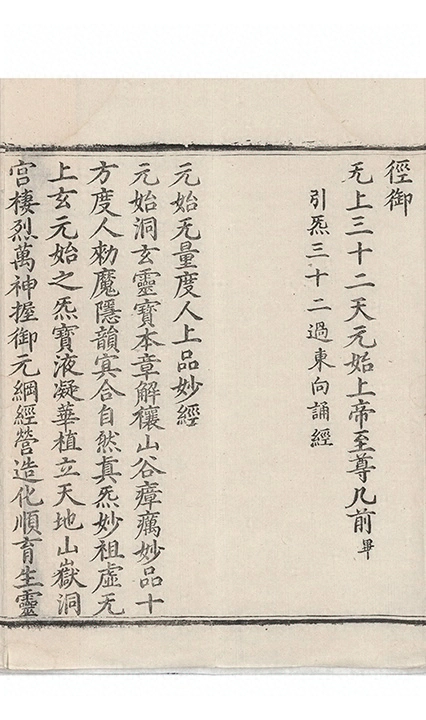 徑御
无上三十二天元始上帝至尊几前畢
引炁三十二過東向誦經
元始无量度人上品妙經
元始洞玄靈寶本章解禳山谷瘴癘妙品十
方度人勑魔隱韻㝠合自然真炁妙祖虛无
上玄元始之炁寶液凝華植立天地山嶽洞
宫棲烈萬神握御元綱經營造化順育生靈